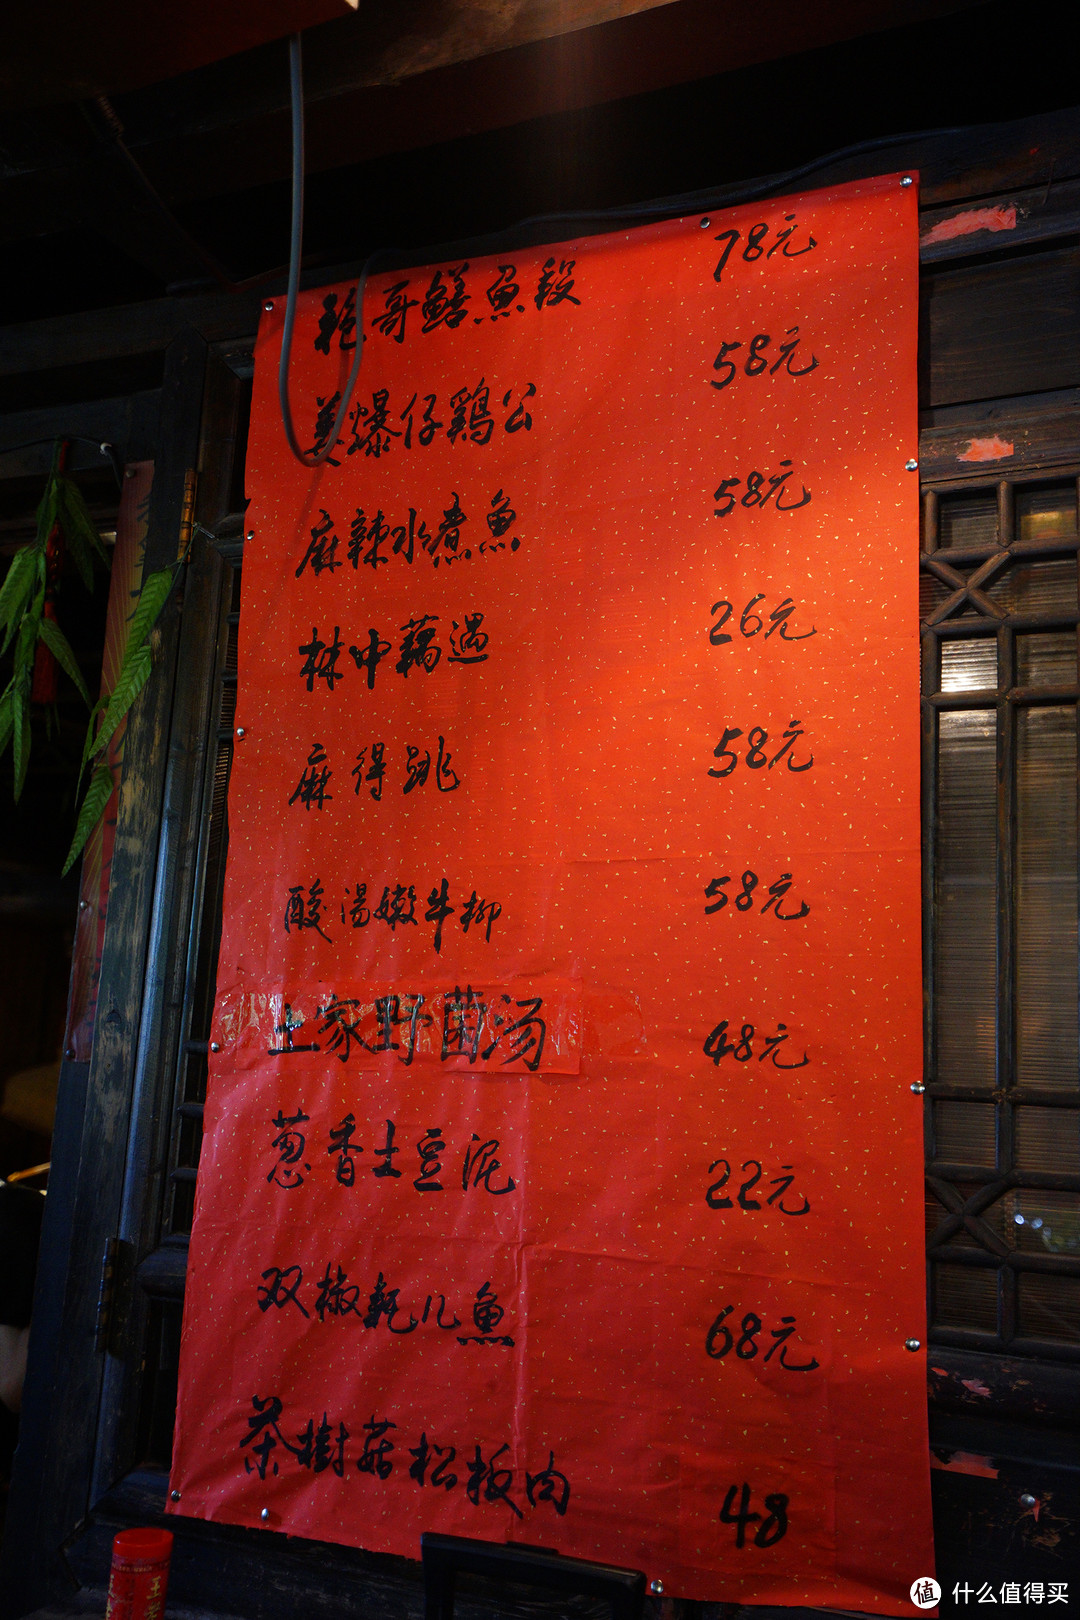 鲍哥鳝魚段 78元
姜爆仔鷄公 58元
麻辣水煮魚 58元
林中藕遇 26元
麻得跳 58元
酸湯嫩牛柳 58元
土家野菌汤 48元
葱香土豆泥 22元
双椒耗儿魚 68元
茶樹菇松板肉 48
值 什么值得买